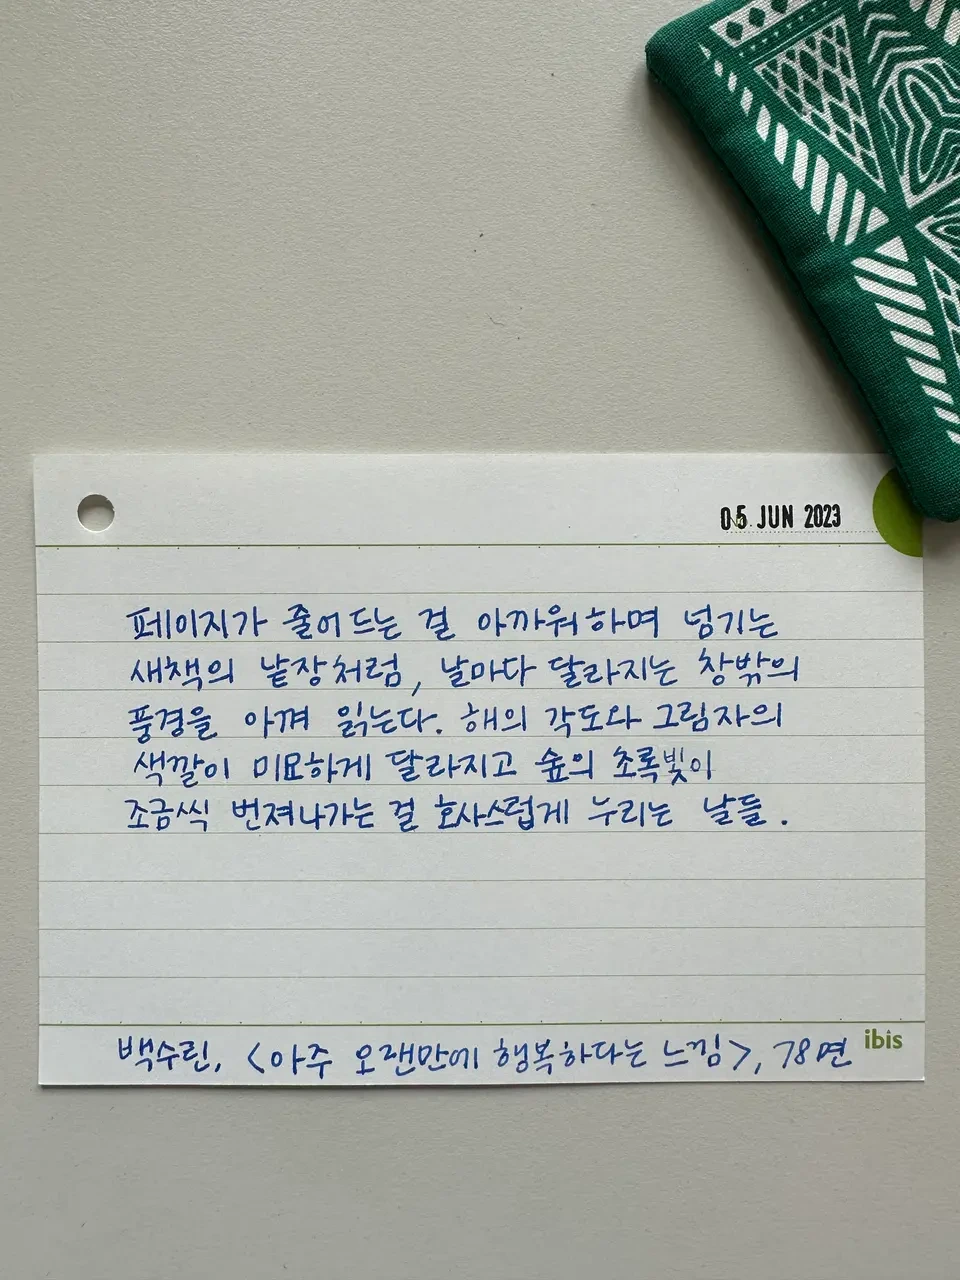 05 JUN 2023
페이지가 줄어드는 걸 아까워하며 넘기는
새책의 낱장처럼, 날마다 달라지는 창밖의
풍경을 아껴 읽는다. 해의 각도와 그림자의
색깔이 미묘하게 달라지고 숲의 초록빛이
조금씩 번져나가는 걸 호사스럽게 누리는 날들.
백수린, <아주 오랜만에 행복하다는 느낌>, 78면
ibis